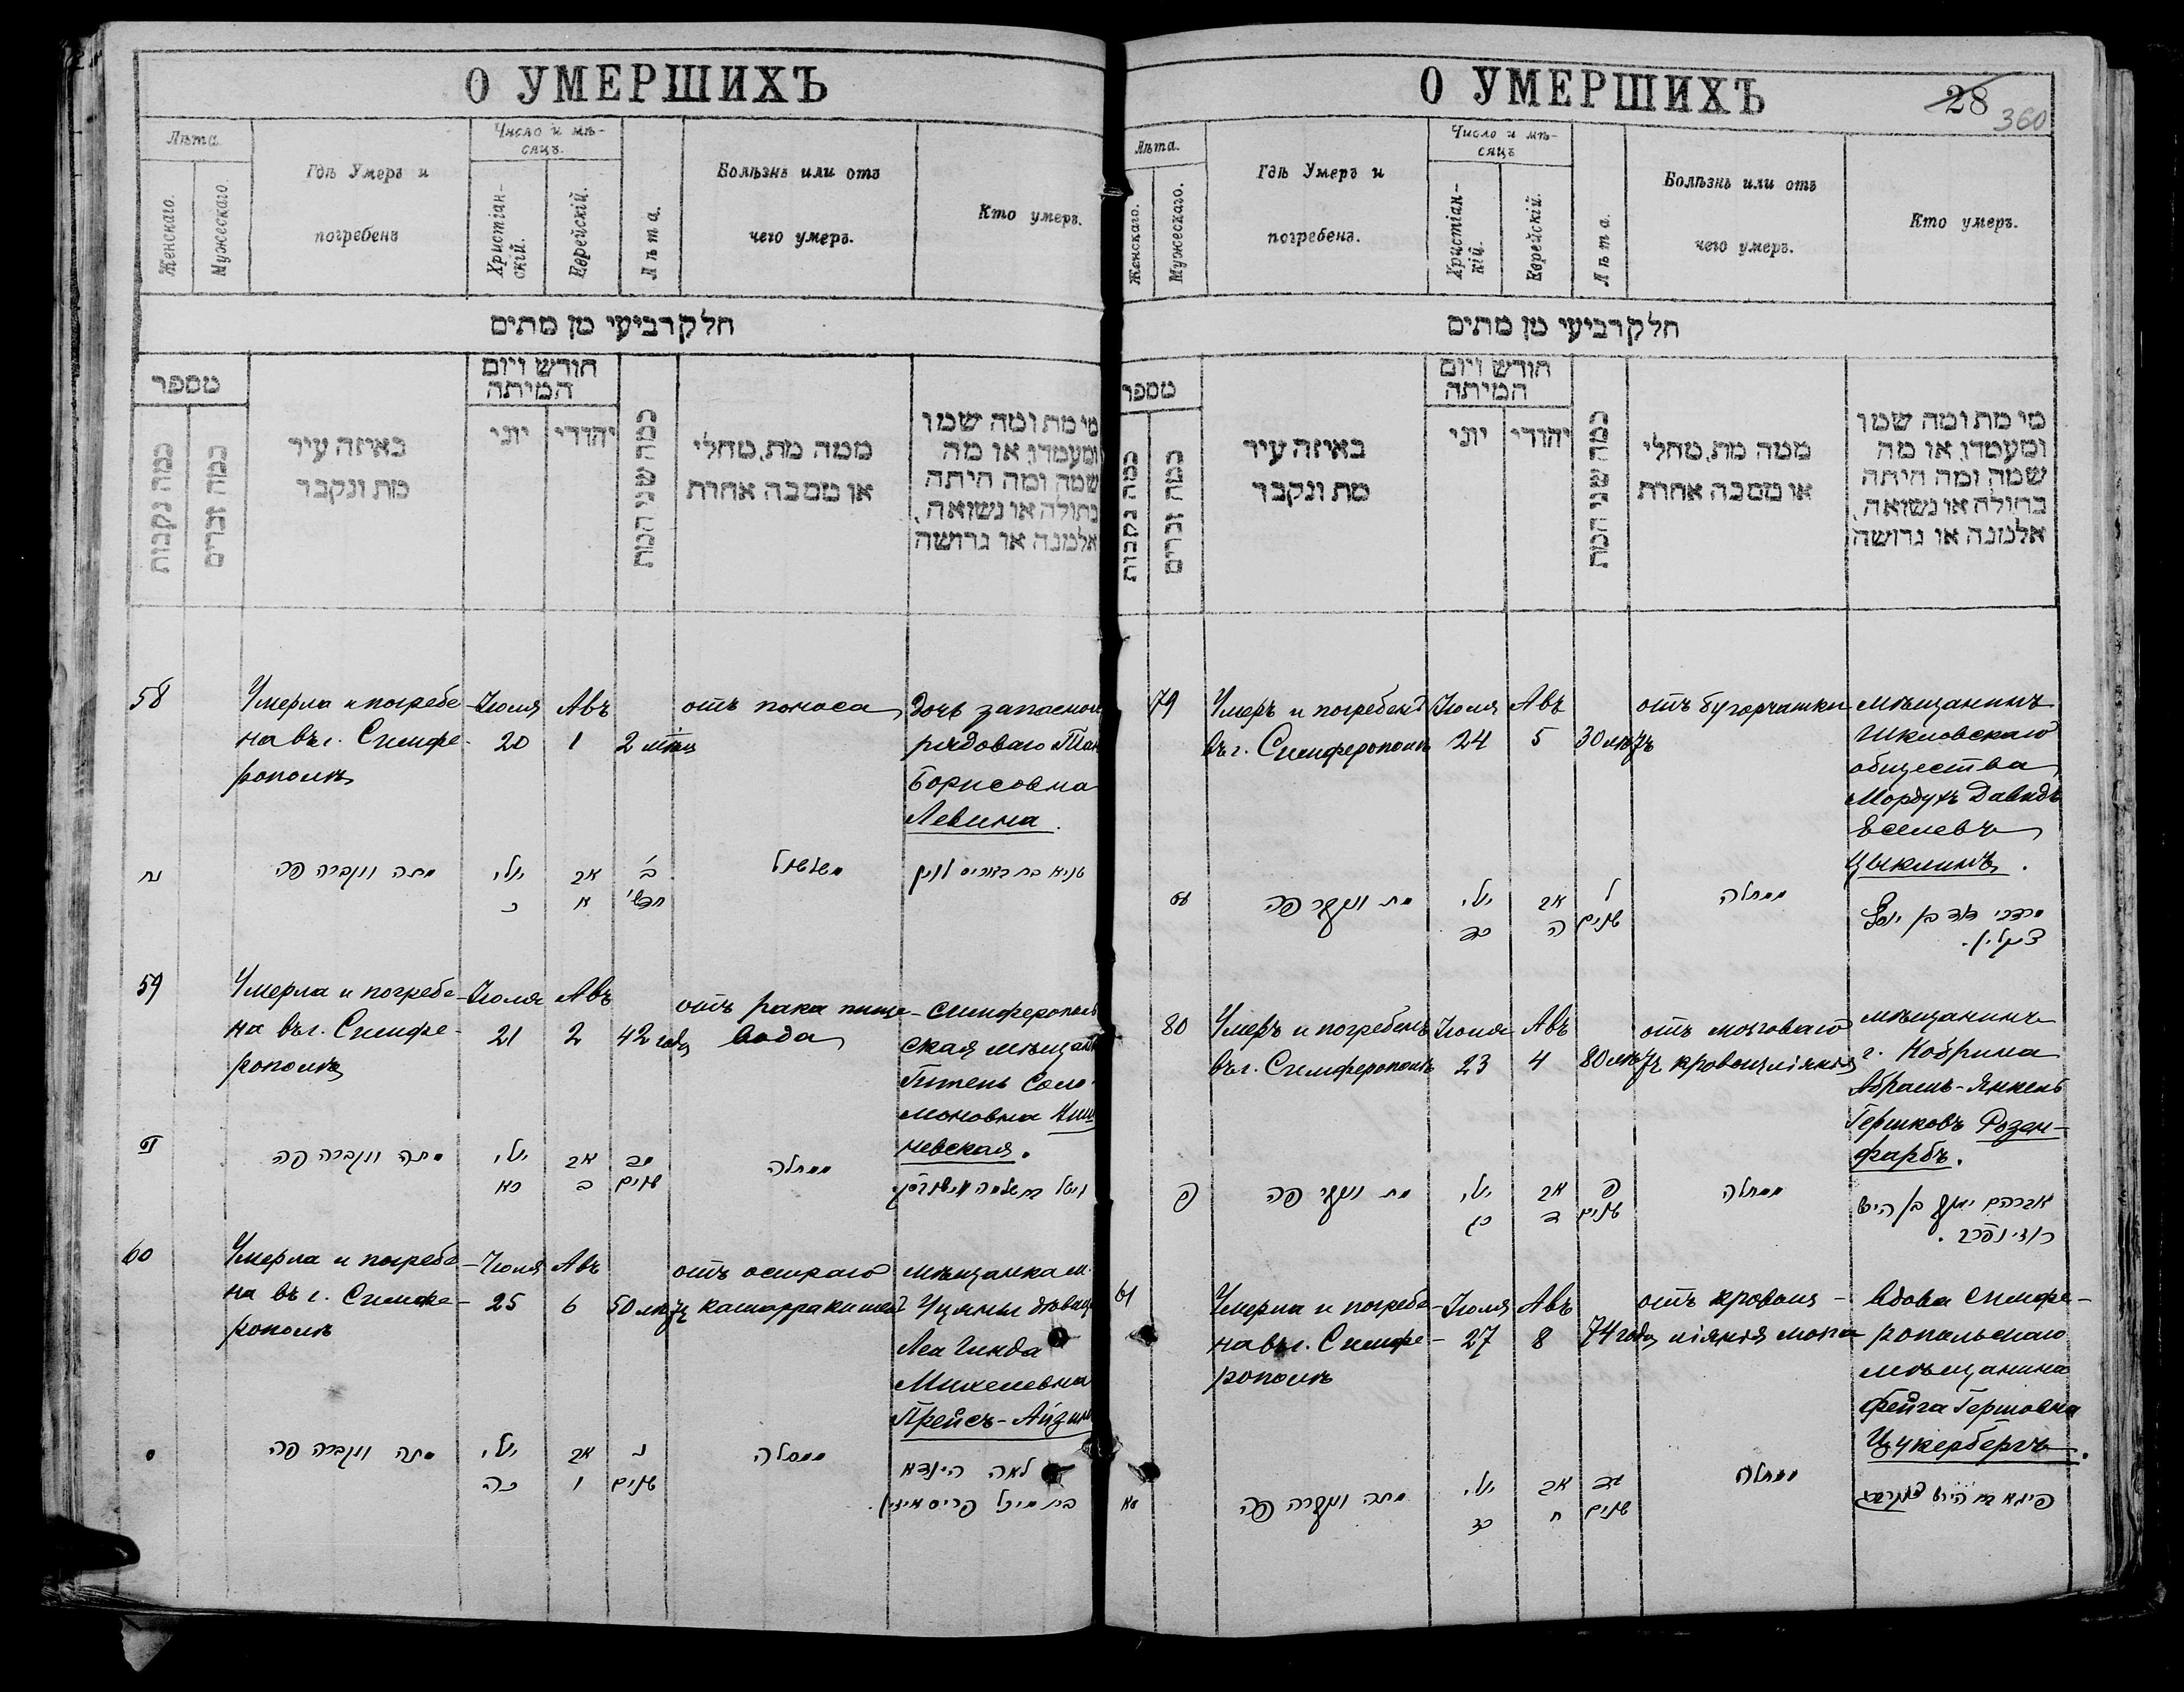 О УМЕРШИХЪ
Лѣта.
Женскаго.
Мужескаго.
Гдѣ Умеръ и
погребенъ
Число и мѣ-
сяцъ.
Христіан-
скій.
Еврейскій.
Лѣта.
Болѣзнь или отъ
чего умеръ.
Кто умеръ.
חלק רביעי מן מתים
מספר
כמה נקבות
כמה זכרים
באיזה עיר
מת ונקבר
חודש ויום
המיתה
יוני
יהודי
כמה שני המת
ממה מת, מחלי
או מסבה אחרת
מי מת ומה שמו
ומעמדו, או מה
שמה ומה היתה
בתולה או נשואה,
אלמנה או גרושה
58
Умерла и погребе-
на въ г. Симфе-
рополѣ
Іюля
20
Авъ
1
2 мѣс
отъ поноса
Дочь запасного
рядового
Борисовна
Левина.
נח
מתה ונקברה פה
יולי
כ
אב
א
ב'
חדשי
משלשול
טניא בת בארים לוין
59
Умерла и погребе-
на въ г. Симфе-
рополѣ
Іюля
21
Авъ
2
42 года
отъ рака пище-
вода
Симферополь
ская мѣщан
Гитель Соло-
моновна Киши
невская.
נט
מתה ונקברה פה
יולי
כא
אב
ב
מב
שנים
ממחלה
60
Умерла и погребе-
на въ г. Симфе-
рополѣ
Іюля
25
Авъ
6
50 лѣтъ
отъ остраго
катарра кишекъ
мѣщанка м.
дѣвица
Лея Гинда
Михелевна
Прейсъ-Айзин
ס
מתה ונקברה פה
יולי
כה
אב
ו
נ
שנים
ממחלה
לאה הינדא
בת מיכל פריס אייזין
О УМЕРШИХЪ
28
360
Лѣта.
Женскаго.
Мужескаго.
Гдѣ Умеръ и
погребенъ.
Число и мѣ-
сяцъ
Христіан-
кій.
Еврейскій.
Лѣта.
Болѣзнь или отъ
чего умеръ.
Кто умеръ.
חלק רביעי מן מתים
מספר
כמה נקבות
כמה זכרים
באיזה עיר
מת ונקבר
חודש ויום
המיתה
יוני
יהודי
כמה שני המת
ממה מת, מחלי
או מסבה אחרת
מי מת ומה שמו
ומעמדו, או מה
שמה ומה היתה
בתולה או נשואה,
אלמנה או גרושה
79
Умеръ и погребенъ
въ г. Симферополѣ
Іюля
24
Авъ
5
30 лѣтъ
отъ бугорчатки
мѣщанинъ
Шкловскаго
общества
Мордухъ Давидъ
Еселевъ
Цыклинъ.
עט
מת ונקבר פה
יולי
כד
אב
ה
ל
שנים
ממחלה
מרדכי דוד בן יוסף
ציקלין.
80
Умеръ и погребенъ
въ г. Симферополѣ
Іюля
23
Авъ
4
80 лѣтъ
отъ мозгового
кровоизліянія
мѣщанинъ
г. Кобрина
Абрамъ-Янкель
Гершковъ Розен-
фарбъ.
פ
מת ונקבר פה
יולי
כג
אב
ד
פ
שנים
ממחלה
אברהם יעקב בן הירש
ראזינפרב.
61
Умерла и погребе-
на въ г. Симфе-
рополѣ
Іюля
27
Авъ
8
74 года
отъ кровоиз-
ліянія мозга
Вдова симфе-
ропольскаго
мѣщанина
Фейга Гершовна
Цукербергъ.
סא
מתה ונקברה פה
יולי
כז
אב
ח
עד
שנים
ממחלה
פייגא בת הירש צוקערבערג